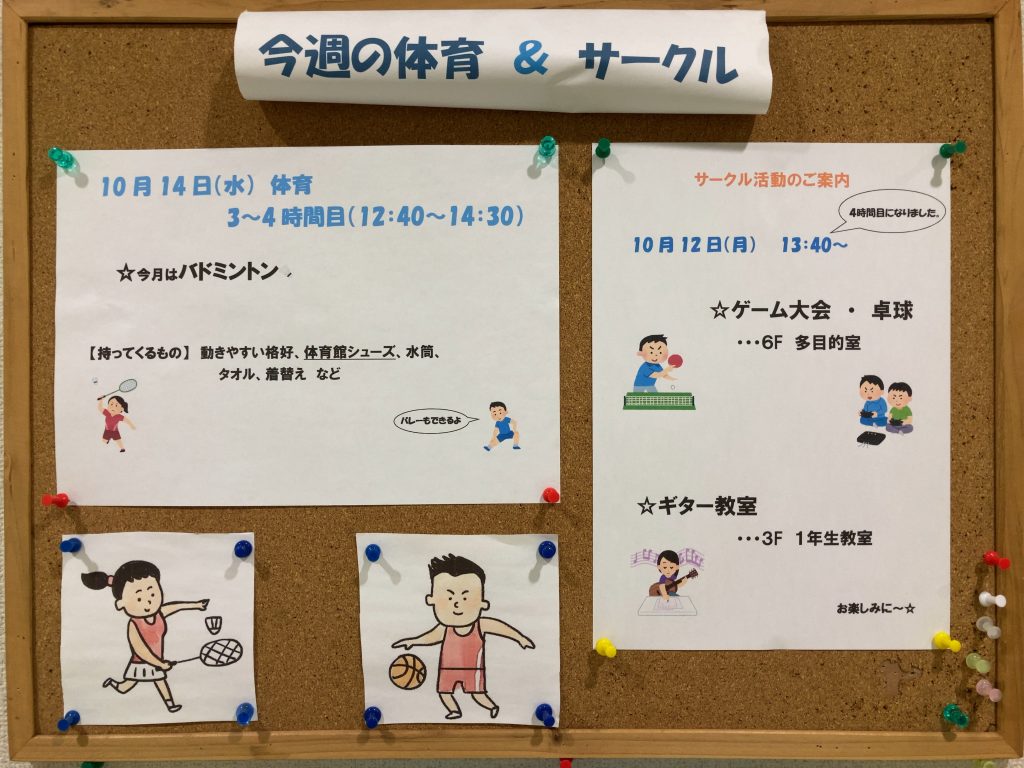 今週の体育 & サークル
10月14日(水) 体育
3～4時間目(12:40～14:30)
☆今月はバドミントン
【持ってくるもの】 動きやすい格好、体育館シューズ、水筒、
タオル、着替え など
バレーもできるよ
サークル活動のご案内
4時間目になりました。
10月12日(月) 13:40～
☆ゲーム大会 ・ 卓球
・・・6F 多目的室
☆ギター教室
・・・3F 1年生教室
お楽しみに～☆